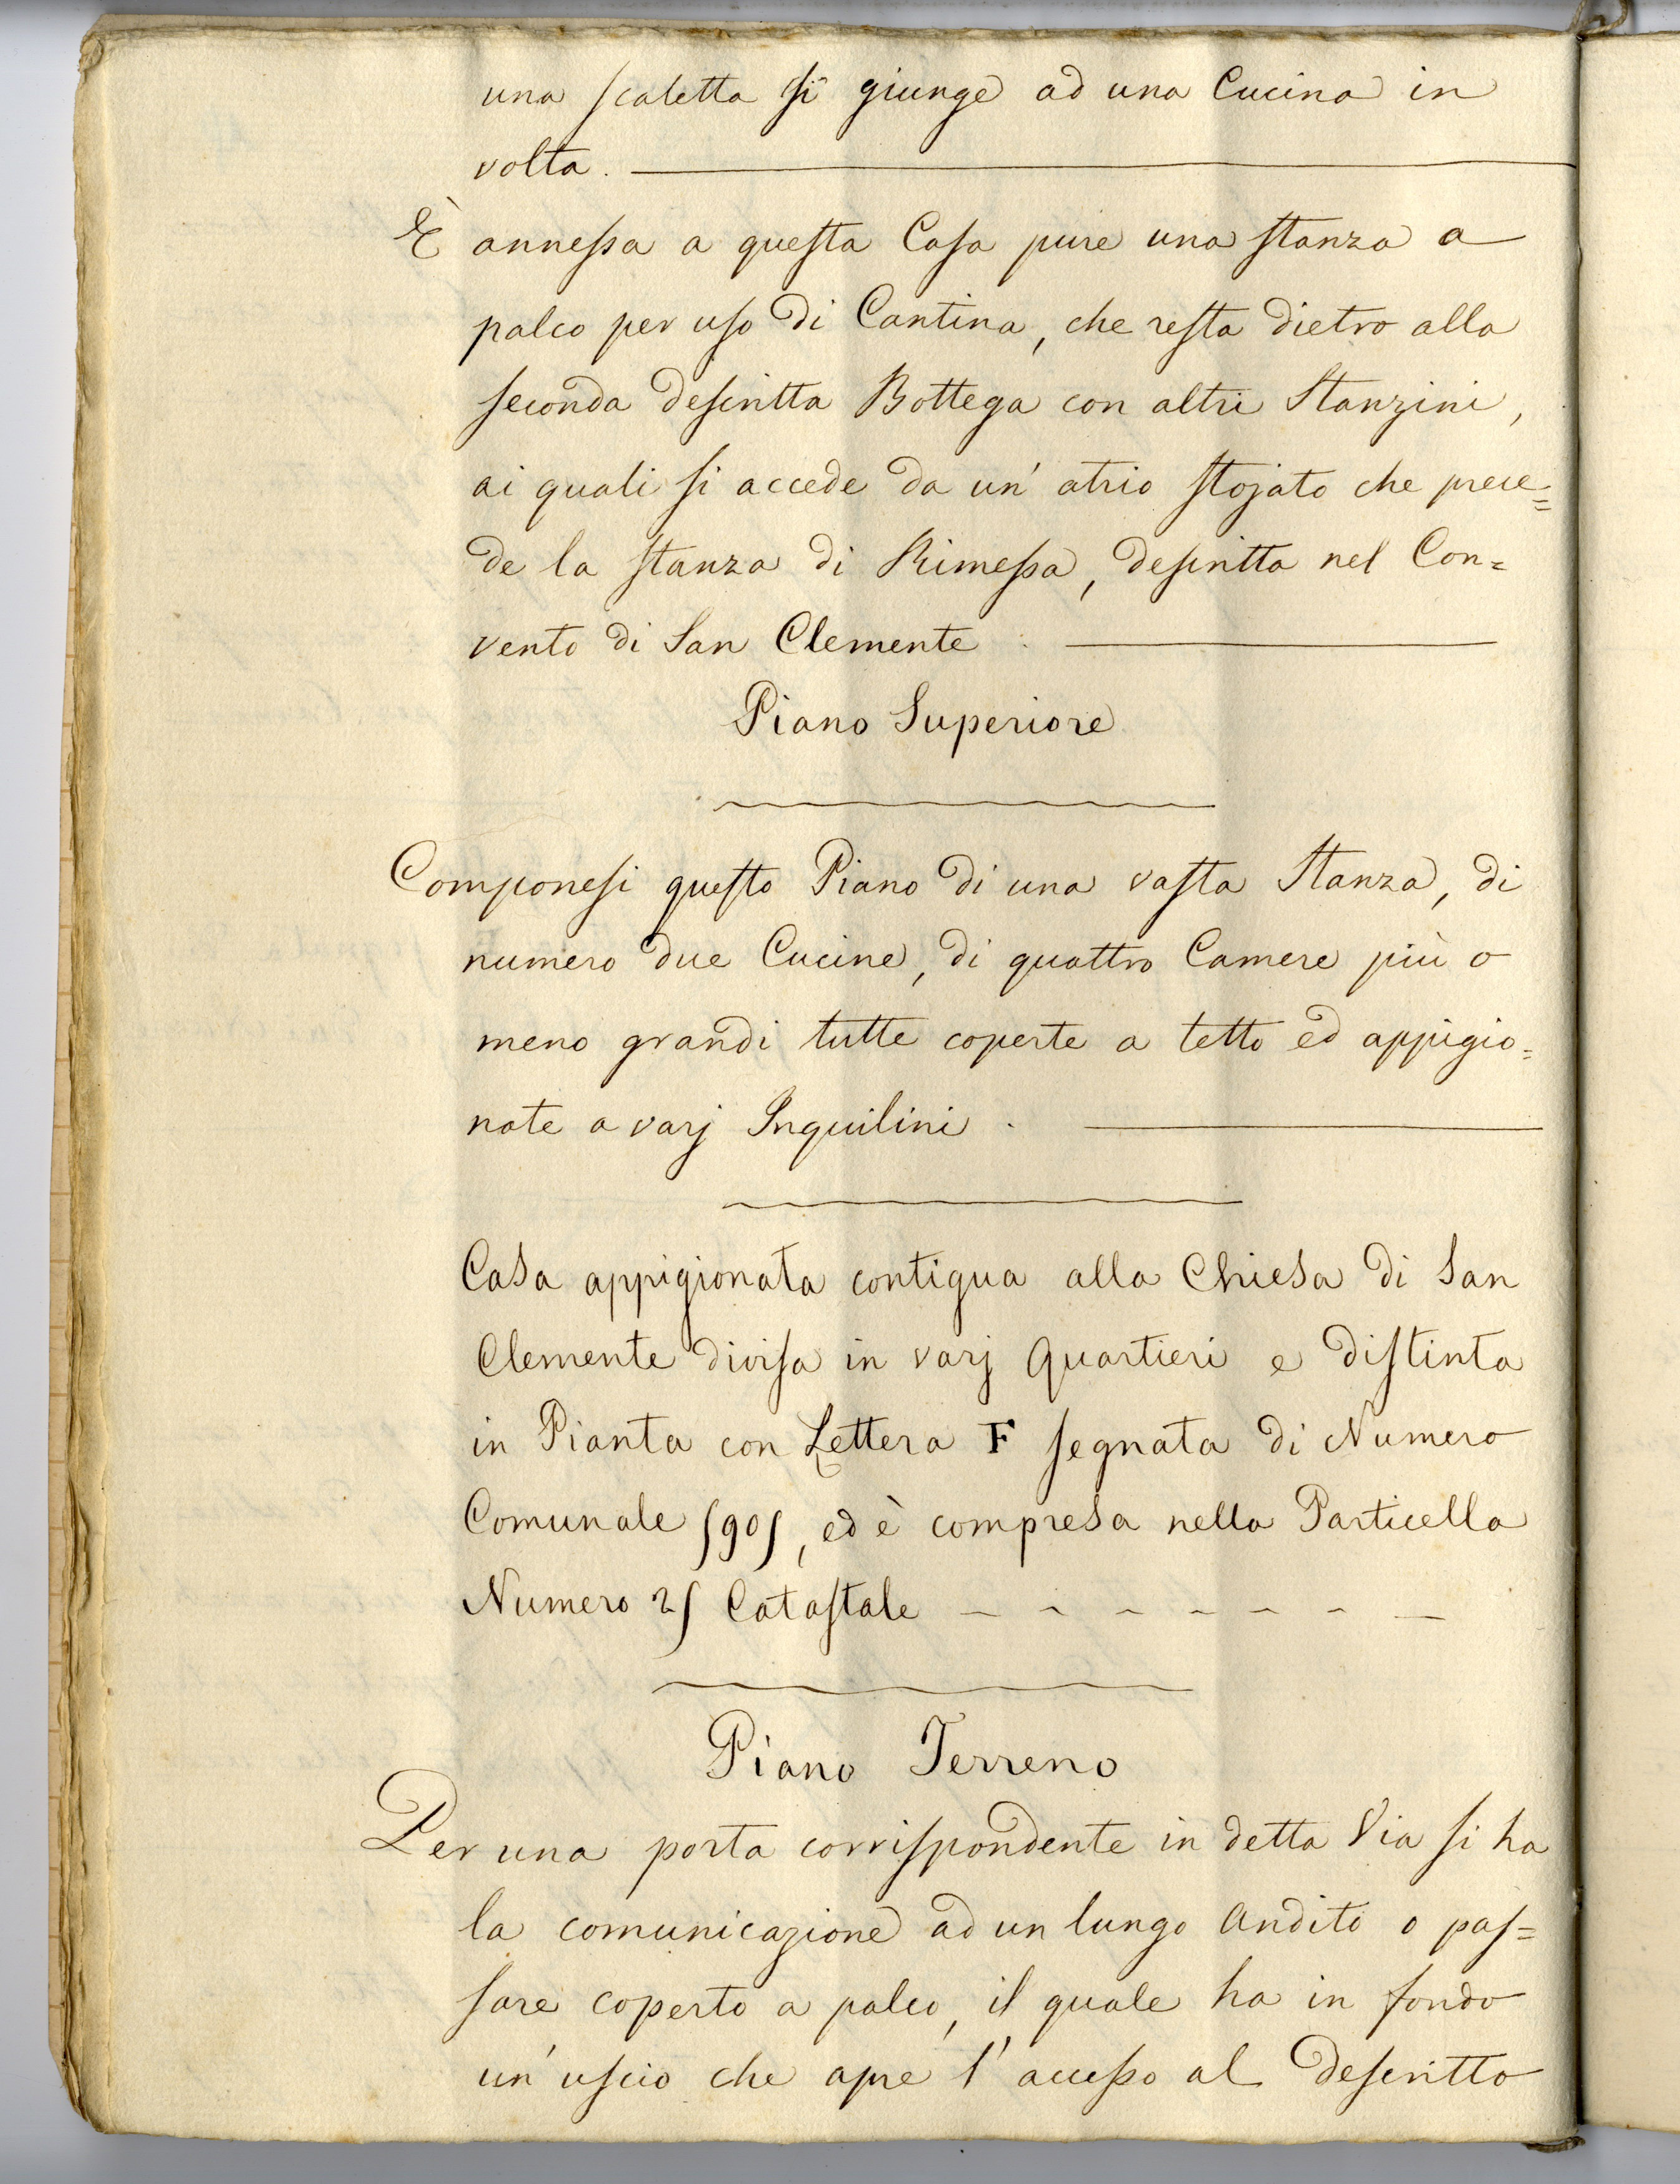 una scaletta si giunge ad una Cucina in
volta.
È annessa a questa Casa pure una stanza a
palco per uso di Cantina, che resta dietro alla
seconda descritta Bottega con altri Stanzini,
ai quali si accede da un' atrio stojato che prece=
de la stanza di Rimessa, descritta nel Con=
vento di San Clemente.
Piano Superiore
Componesi questo Piano di una vasta Stanza, di
numero due Cucine, di quattro Camere più o
meno grandi tutte coperte a tetto ed appigio=
nate a varj Inquilini.
Casa appigionata contigua alla Chiesa di San
Clemente divisa in varj Quartieri e distinta
in Pianta con Lettera F segnata di Numero
Comunale 5905, ed è compresa nella Particella
Numero 25 Catastale
Piano Terreno
Per una porta corrispondente in detta Via si ha
la comunicazione ad un lungo andito o pas=
sare coperto a palco, il quale ha in fondo
un' uscio che apre l' accesso al descritto